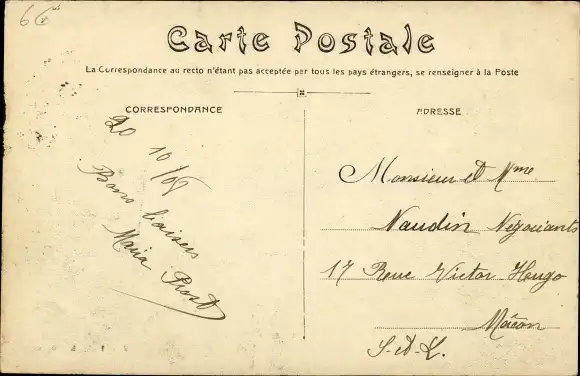 66
Carte Postale
La Correspondance au recto n'étant pas acceptée par tous les pays étrangers, se renseigner à la Poste
CORRESPONDANCE
20 10/08
Bons baisers
Maria
ADRESSE
Monsieur et Mme
Naudin Négociants
17 Rue Victor Hugo
Mâcon
S-et-L.